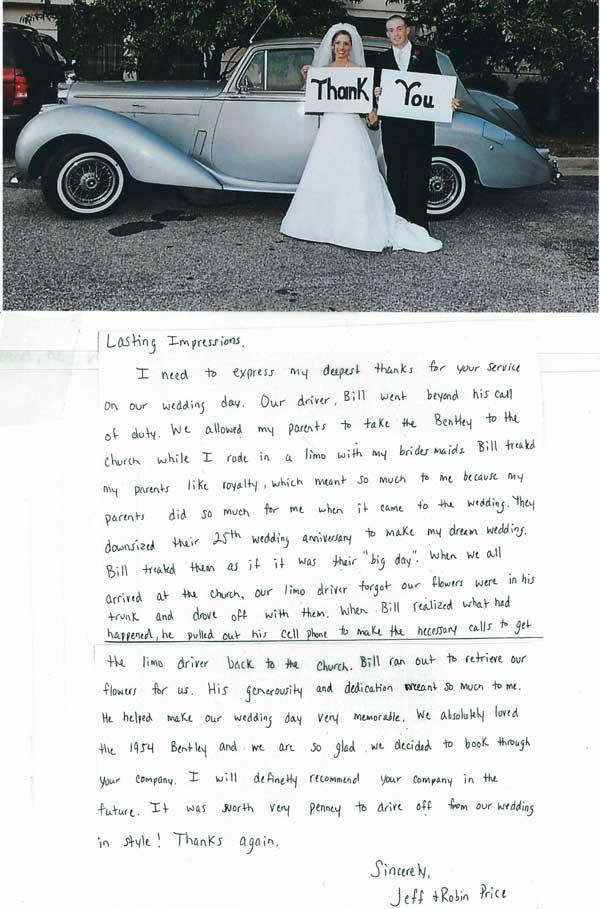 Thank You
Lasting Impressions,
I need to express my deepest thanks for your service
on our wedding day. Our driver, Bill went beyond his call
of duty. We allowed my parents to take the Bentley to the
church while I rode in a limo with my brides maids. Bill treated
my parents like royalty, which meant so much to me because my
parents did so much for me when it came to the wedding. They
downsized their 25th wedding anniversary to make my dream wedding.
Bill treated them as if it was their "big day". When we all
arrived at the church, our limo driver forgot our flowers were in his
trunk and drove off with them. When Bill realized what had
happened, he pulled out his cell phone to make the necessary calls to get
the limo driver back to the church. Bill ran out to retrieve our
flowers for us. His generousity and dedication meant so much to me.
He helped make our wedding day very memorable. We absolutely loved
the 1954 Bentley and we are so glad we decided to book through
your company. I will definetly recommend your company in the
future. It was worth very penney to drive off from our wedding
in style! Thanks again.
Sincerely,
Jeff + Robin Price